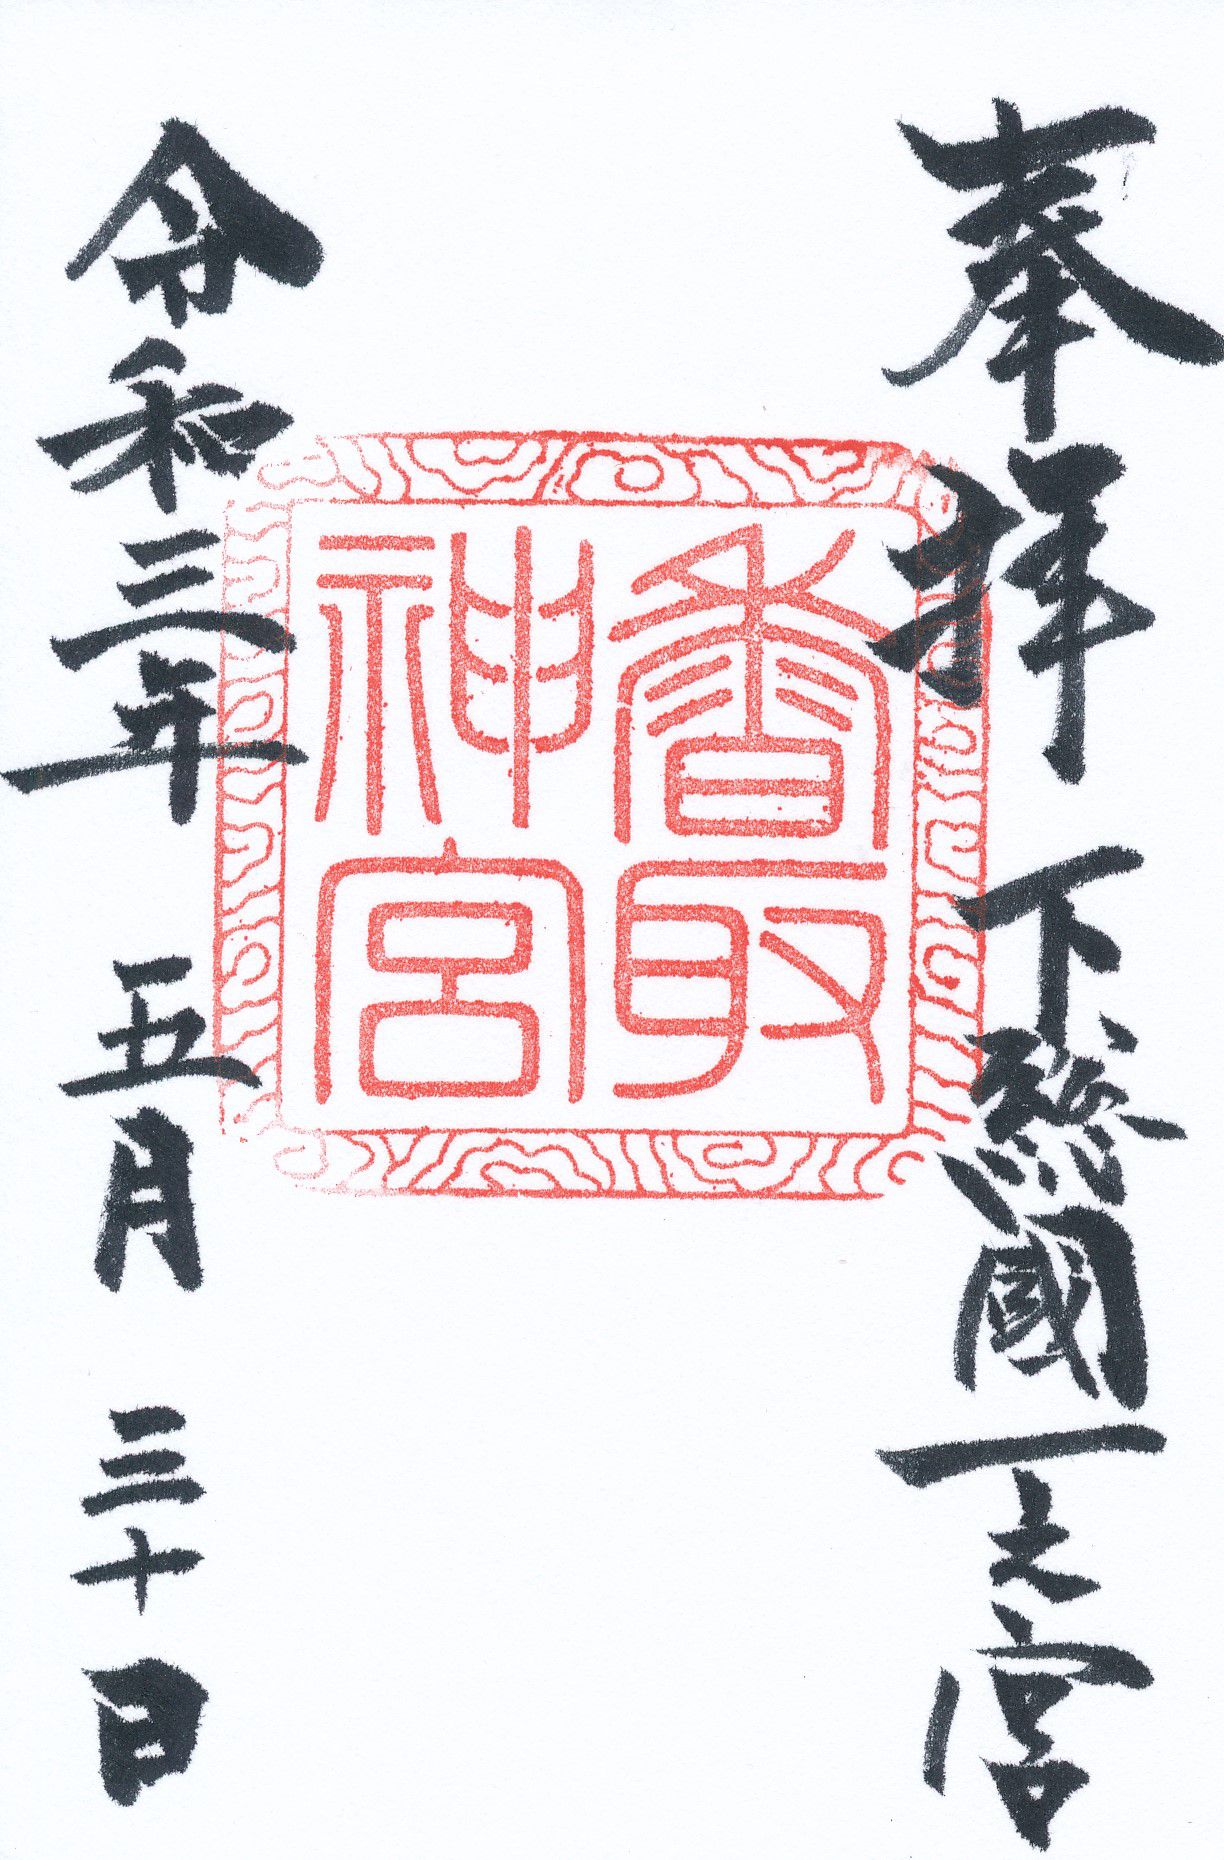 奉拝 下総國一之宮
香取
神宮
令和三年 五月 三十日